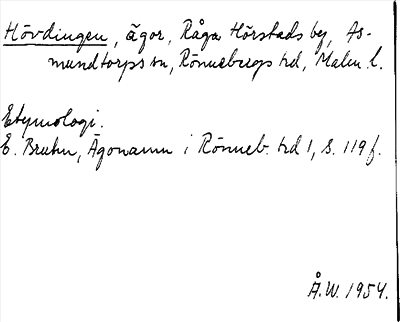 Hövdingen, ägor, Råga Hörstads by, As-
mundtorps sn, Rönnebergs hd, Malm. l.
Etymologi.
E. Bruhn, Ägonamn i Rönneb. hd 1, s. 119 f.
Å.W. 1954.